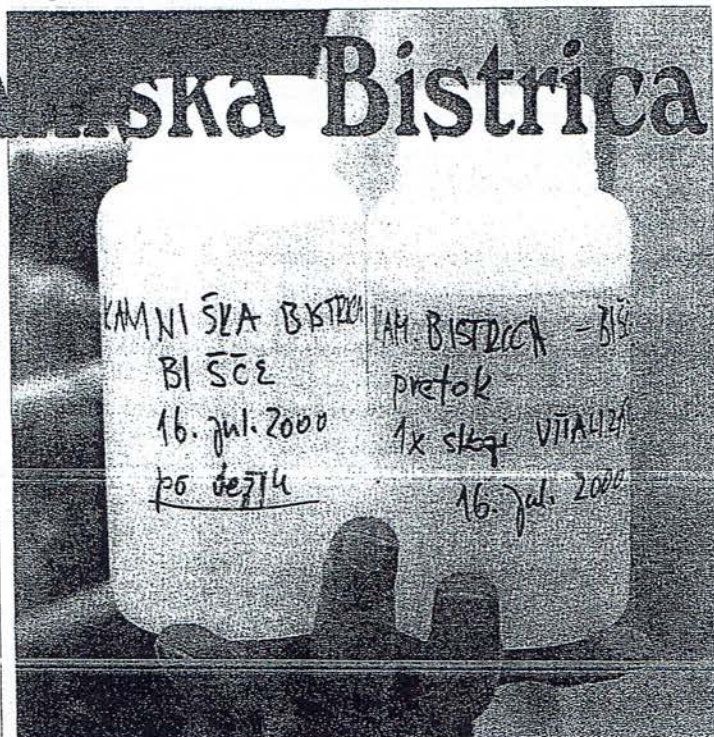 ška Bistrica
KAMNIŠKA BISTRICA
BIŠČE
16. jul. 2000
po dežju
KAM. BISTRICA – BIŠ
pretok
1x skozi VITALIZA
16. jul. 2000